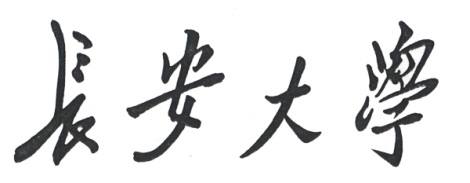 長安大學